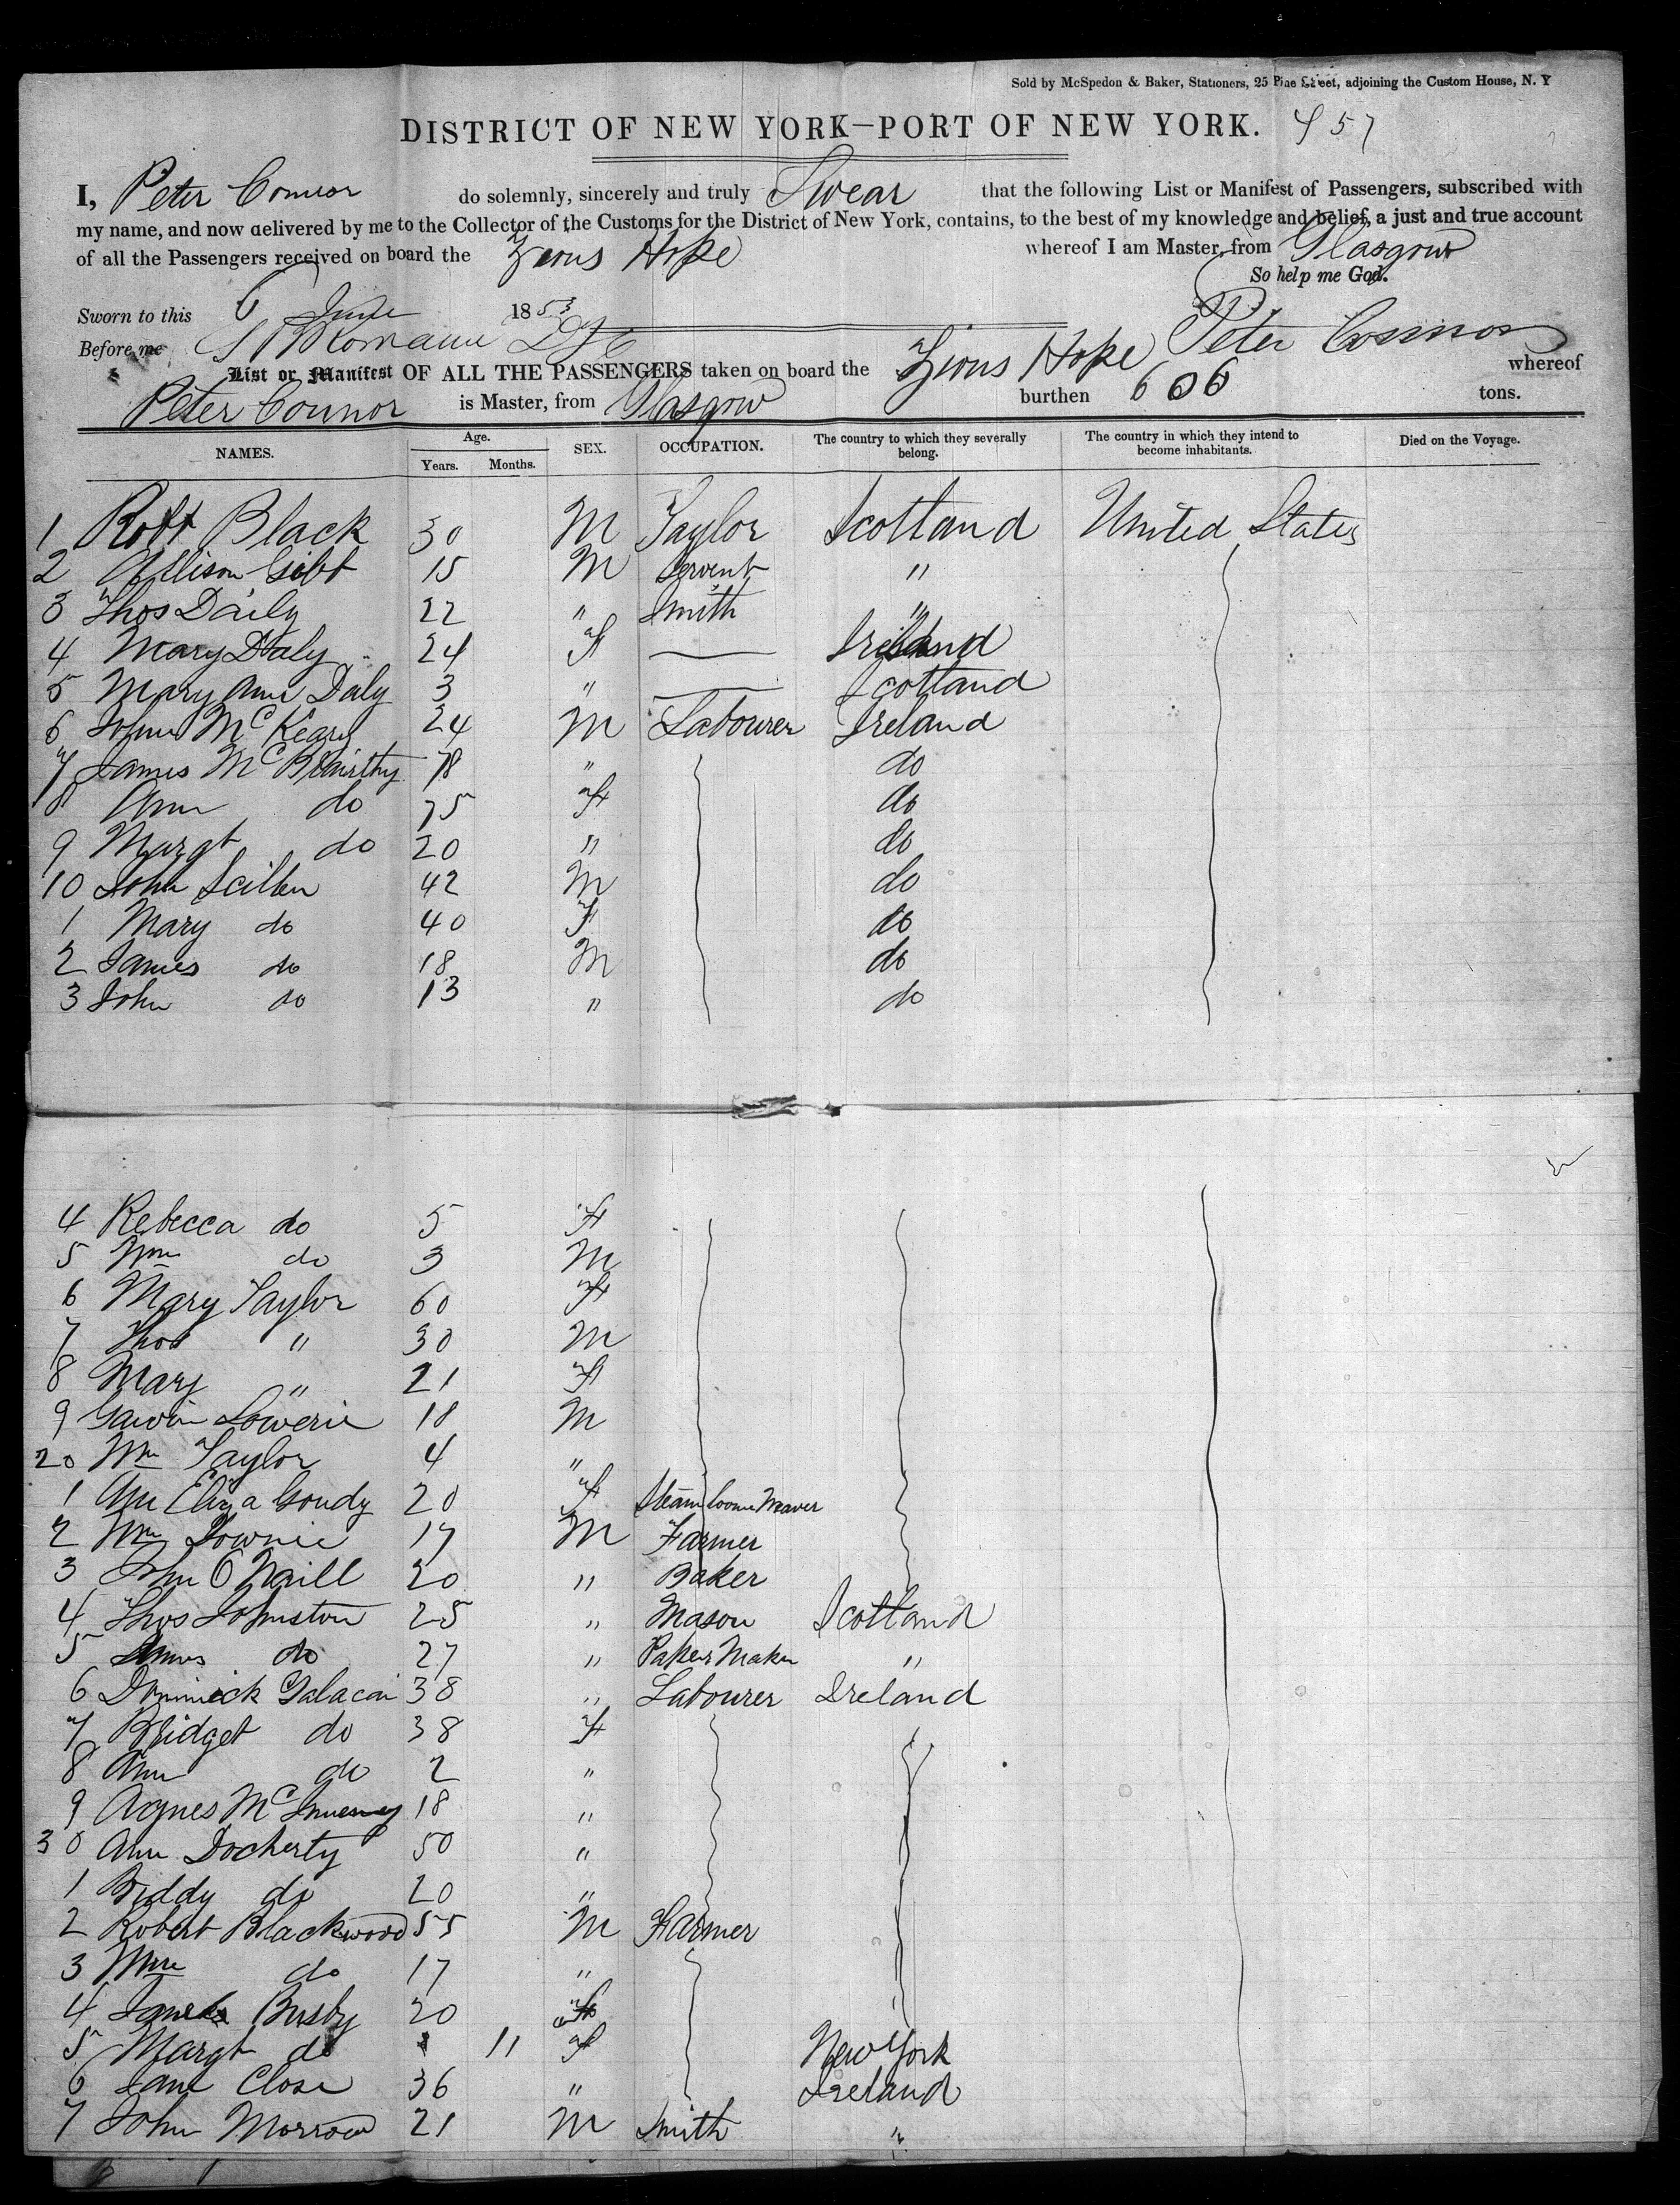 Sold by McSpedon & Baker, Stationers, 25 Pine Street, adjoining the Custom House, N. Y
DISTRICT OF NEW YORK—PORT OF NEW YORK. 457
I, Peter Connor do solemnly, sincerely and truly Swear that the following List or Manifest of Passengers, subscribed with
my name, and now delivered by me to the Collector of the Customs for the District of New York, contains, to the best of my knowledge and belief, a just and true account
of all the Passengers received on board the Zions Hope whereof I am Master, from Glasgow
So help me God.
Sworn to this 6 June 1853
Before me Peter Connor
List or Manifest OF ALL THE PASSENGERS taken on board the Zions Hope whereof
Peter Connor is Master, from Glasgow burthen 606 tons.
NAMES. Age. Years. Months. SEX. OCCUPATION. The country to which they severally belong. The country in which they intend to become inhabitants. Died on the Voyage.
1 Robt Black 30 M Taylor Scotland United States
2 Allison Gibb 15 M Servent "
3 Thos Daily 22 " Smith "
4 Mary Daly 24 F — Ireland
5 Mary Ann Daly 3 " — Scotland
6 John McKeary 24 M Labourer Ireland
7 James 78 " do
8 Ann do 75 F do
9 Margt do 20 " do
10 John Scillen 42 M do
1 Mary do 40 F do
2 James do 18 M do
3 John do 13 " do
4 Rebecca do 5 F
5 Wm do 3 M
6 Mary Taylor 60 F
7 Thos " 30 M
8 Mary " 21 F
9 Gawin Lowerie 18 M
20 Wm Taylor 4 "
1 Ann Eliza Goudy 20 F Steam loom Weaver
2 Wm Downie 17 M Farmer
3 John O Neill 20 " Baker
4 Thos Johnston 25 " Mason Scotland
5 James do 27 " Paker Maker "
6 Dominick Galacan 38 " Labourer Ireland
7 Bridget do 38 F
8 Ann do 2 "
9 Agnes 18 "
30 Ann Docherty 50 "
1 Biddy do 20 "
2 Robert Blackwood 55 M Farmer
3 Wm do 17 "
4 Jane Busby 20 F
5 Margt do 11 F New York
6 Jane Close 36 " Ireland
7 John Morrow 21 M Smith "